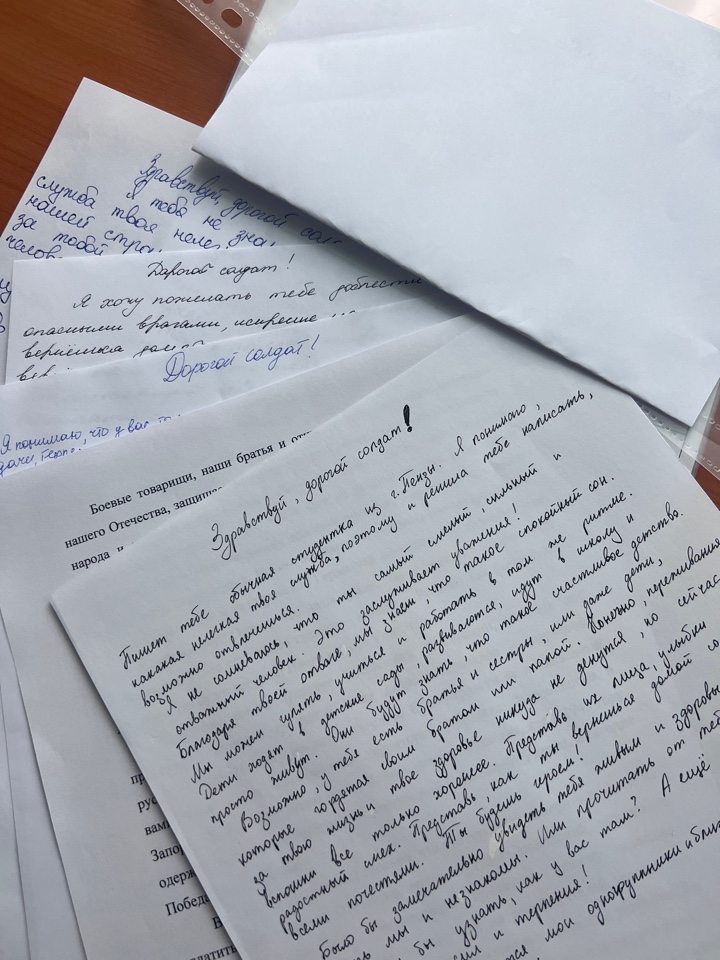 Здравствуй, дорогой сол
Я тебя не зна
служба твоя нелег
нашей стра
за тобой
челов
Дорогой солдат!
Я хочу пожелать тебе доблести
опасными врагами, искренне
вернёшься домой
Дорогой солдат!
Я понимаю, что у вас
Боевые товарищи, наши братья и
нашего Отечества, защища
народа и
пр
рус
вами
Запор
одерж
Победа
В
платить
Здравствуй, дорогой солдат!
Пишет тебе обычная студентка из г. Пензы. Я понимаю,
какая нелегкая твоя служба, поэтому и решила тебе написать,
возможно отвлечешься.
Я не сомневаюсь, что ты самый смелый, сильный и
отважный человек. Это заслуживает уважения!
Благодаря твоей отваге, мы знаем, что такое спокойный сон.
Мы можем гулять, учиться и работать в том же ритме.
Дети ходят в детские сады, развиваются, идут в школу и
просто живут. Они будут знать, что такое счастливое детство.
Возможно, у тебя есть братья и сестры, или даже дети,
которые гордятся своим братом или папой. Конечно, переживания
за твою жизнь и твое здоровье никуда не денутся, но сейчас
вспомни все только хорошее. Представь их лица, улыбки
радостный смех. Представь, как ты вернешься домой со
всеми почестями. Ты будешь героем!
Было бы замечательно увидеть тебя живым и здоровы
мы и незнакомы. Или прочитать от теб
бы узнать, как у вас там? А ещё
и терпения!
мои одногруппники и близ